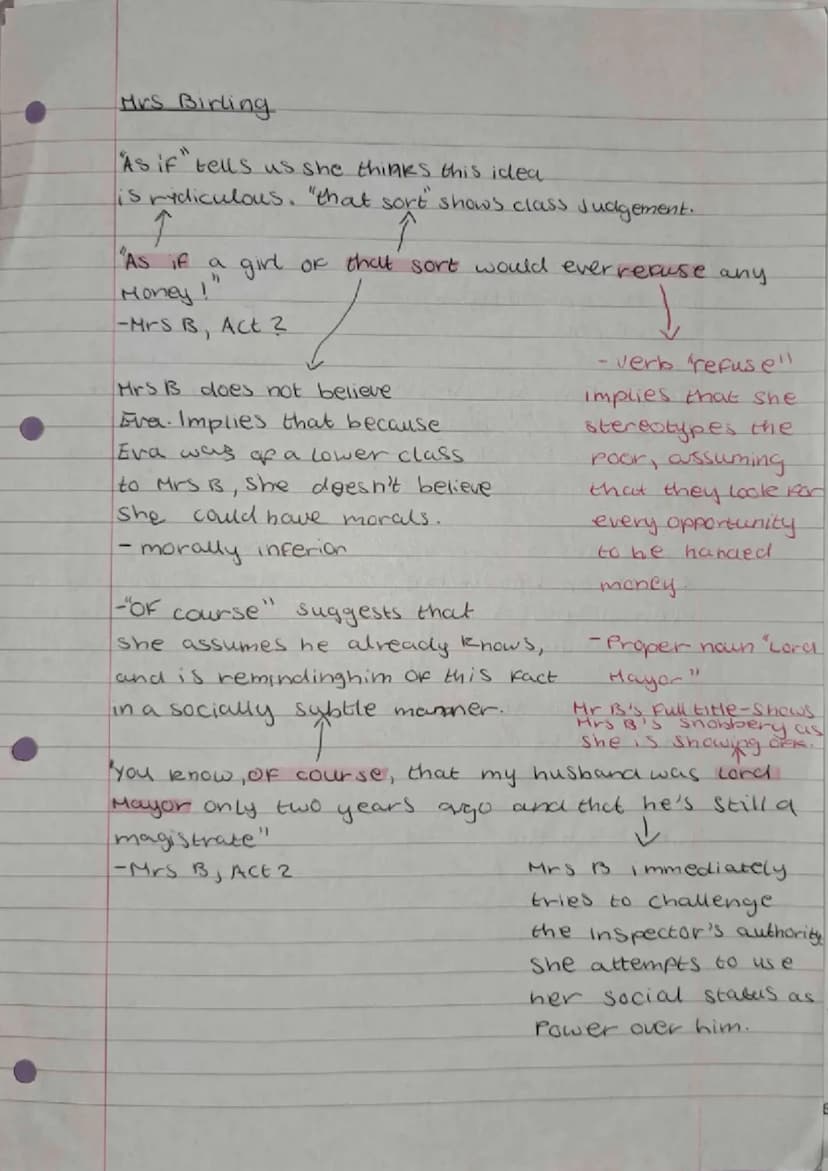 Mrs Birling
"As if" tells us she thinks this idea
is rydiculous. "that sort" shows class Judgement.
"As if a girl of that sort would ever refuse any
Money!"
-Mrs B, Act 2
- verb "refuse"
implies that she
stereotypes the
poor, assuming
that they look for
every opportunity
to be handed
money.
Mrs B does not believe
Eva. Implies that because
Eva was of a lower class
to Mrs B, she doesn't believe
she could have morals.
- morally inferior
-"OF course" suggests that
she assumes he already knows,
and is reminding him of this fact
in a socially subtle manner.
- Proper noun "Lord
Mayor"
Mr B's full title - shows
Mrs B's snobbery as
she is showing off.
"You know, of course, that my husband was Lord
Mayor only two years ago and that he's still a
magistrate"
-Mrs B, Act 2
Mrs B immediately
tries to challenge
the inspector's authority
she attempts to use
her social status as
Power over him.